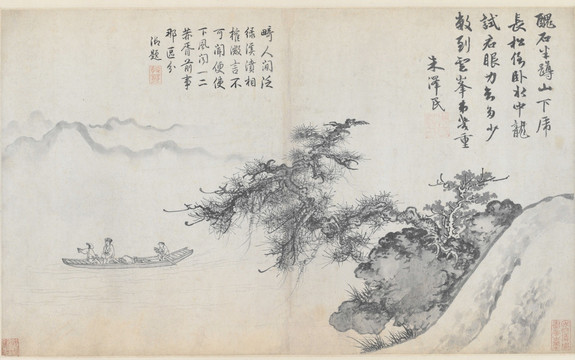 醜石半蹲山下虎
長松倒臥水中龍
試君眼力知多少
數到雲峯第幾重
朱澤民
畸人閒泛
綠溪濆相
榷微言不
可聞便使
下風聞一二
華胥前事
那區分
御題